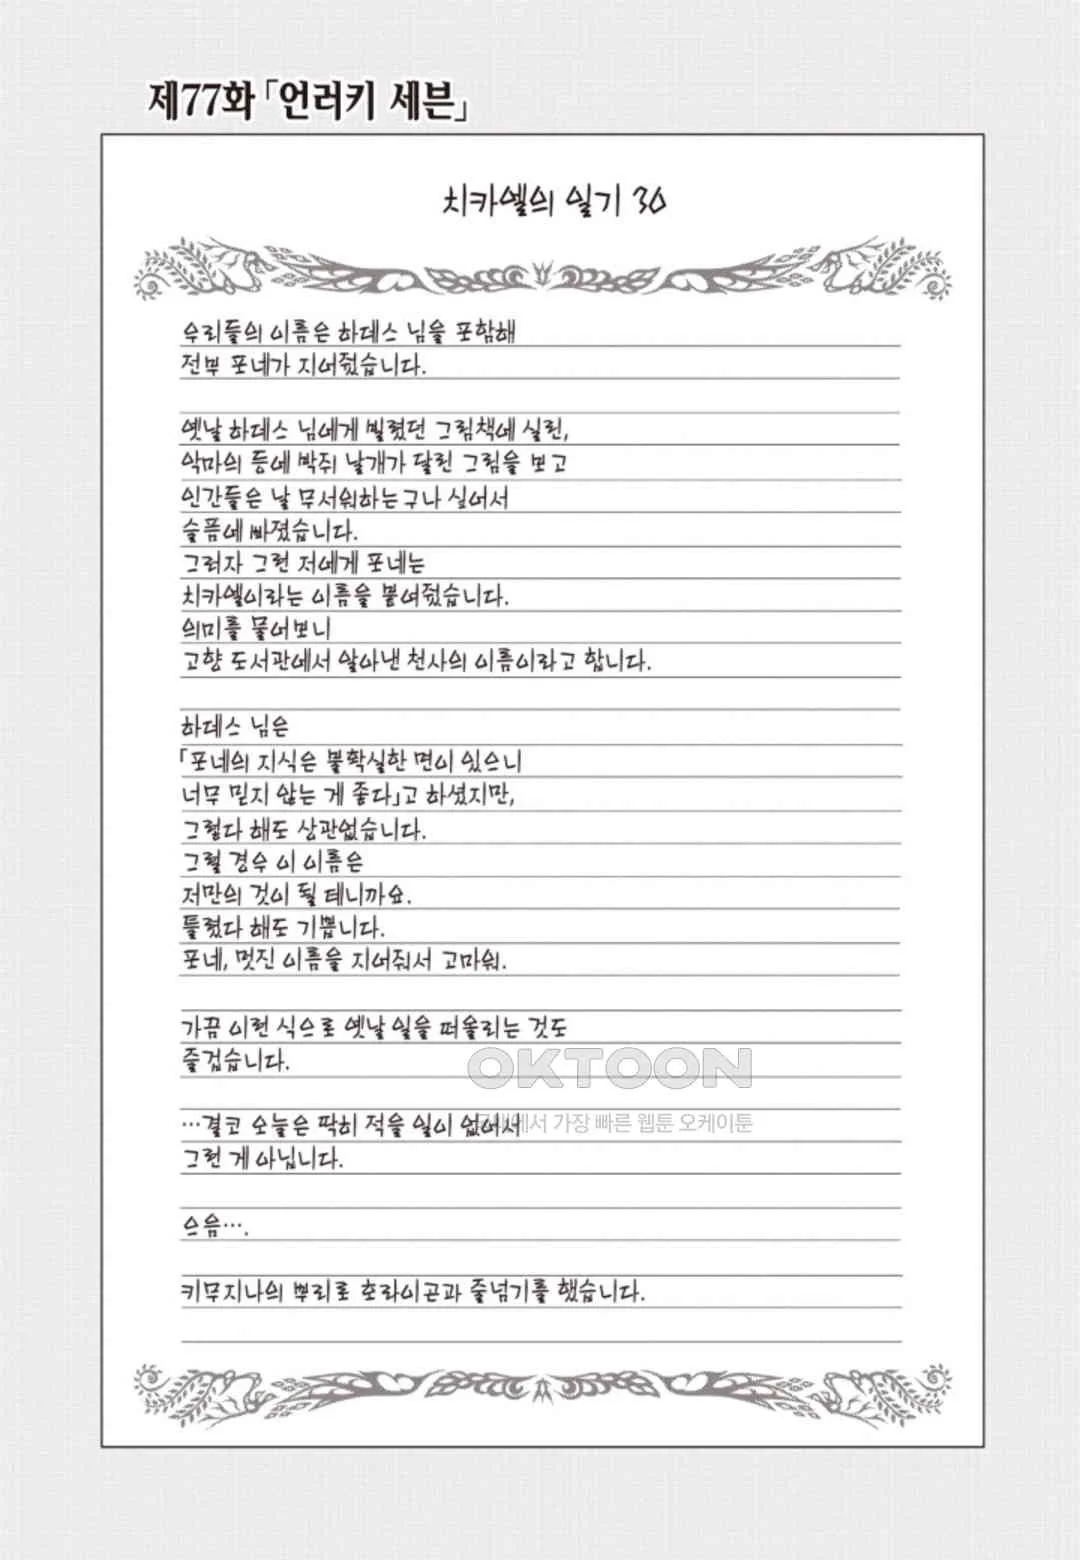 제77화 「언러키 세븐」
치카엘의 일기 30
우리들의 이름은 하데스 님을 포함해
전부 포네가 지어줬습니다.
옛날 하데스 님에게 빌렸던 그림책에 실린,
악마의 등에 박쥐 날개가 달린 그림을 보고
인간들은 날 무서워하는구나 싶어서
슬픔에 빠졌습니다.
그러자 그런 저에게 포네는
치카엘이라는 이름을 붙여줬습니다.
의미를 물어보니
고향 도서관에서 알아낸 천사의 이름이라고 합니다.
하데스 님은
「포네의 지식은 불확실한 면이 있으니
너무 믿지 않는 게 좋다」고 하셨지만,
그렇다 해도 상관없습니다.
그럴 경우 이 이름은
저만의 것이 될 테니까요.
틀렸다 해도 기쁩니다.
포네, 멋진 이름을 지어줘서 고마워.
가끔 이런 식으로 옛날 일을 떠올리는 것도
즐겁습니다.
OKTOON
…결코 오늘은 딱히 적을 일이 없어서
에서 가장 빠른 웹툰 오케이툰
그런 게 아닙니다.
으음….
키무지나의 뿌리로 호라이곤과 줄넘기를 했습니다.